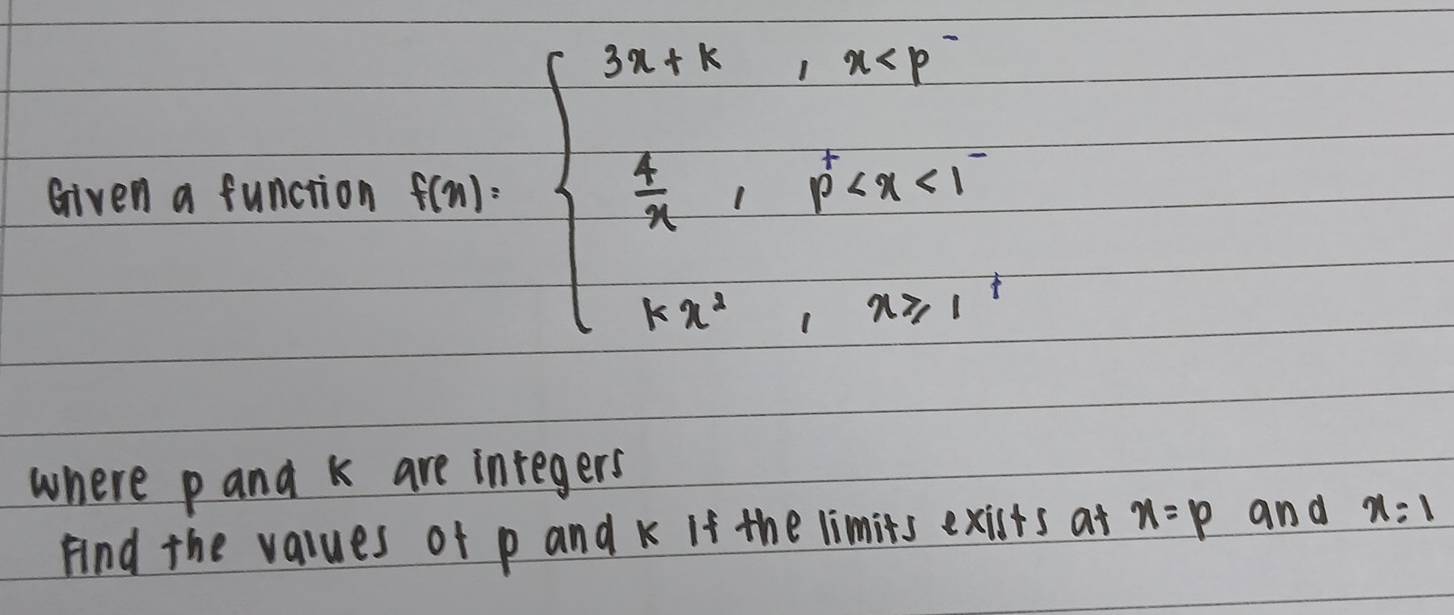 3x + k , x < p⁻
Given a function f(x) = { 4/x , p⁺ < x < 1⁻
kx² , x ⩾ 1⁺
where p and k are integers
Find the values of p and k if the limits exists at x = p and x = 1